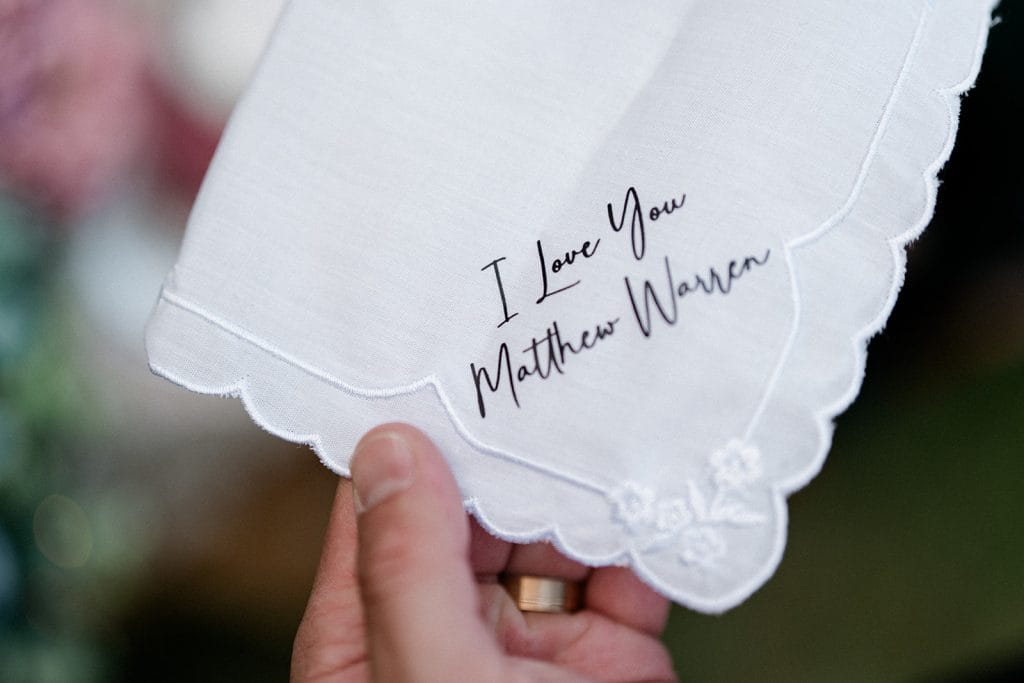 I Love You
Matthew Warren